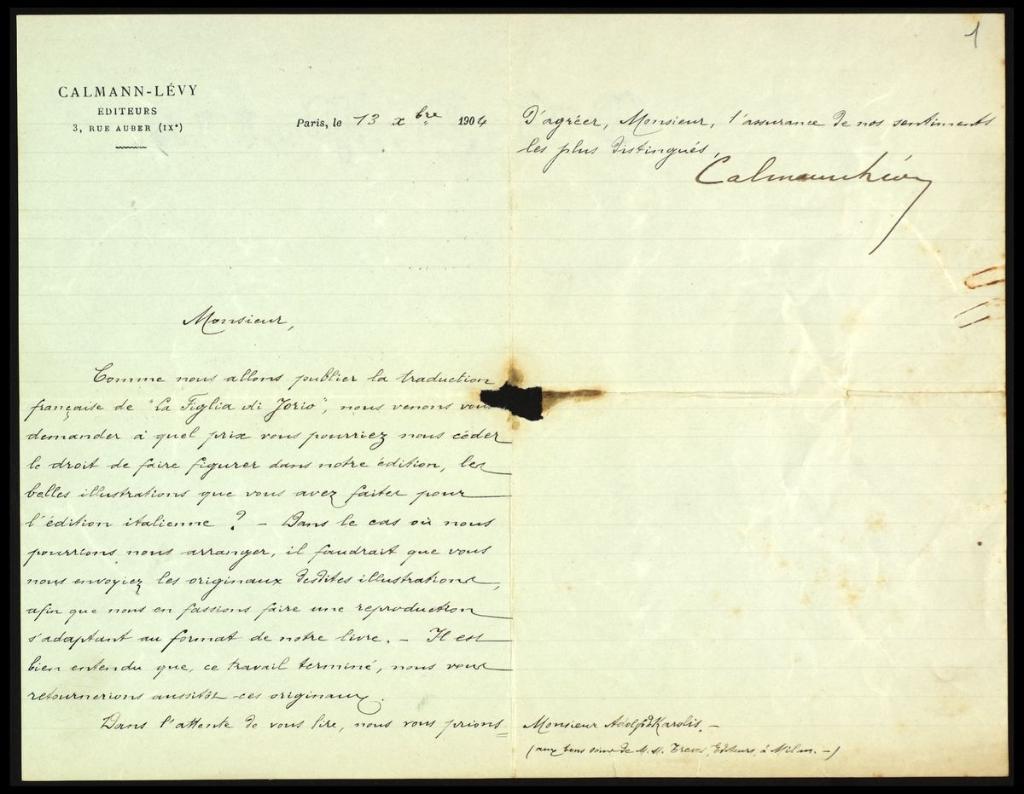 1
CALMANN-LÉVY
EDITEURS
3, RUE AUBER (IXe)
Paris, le 13 xbre 1904
Monsieur,
Comme nous allons publier la traduction
française de "La Figlia di Jorio", nous venons vous
demander à quel prix vous pourriez nous céder
le droit de faire figurer dans notre édition, les
belles illustrations que vous avez faites pour
l'édition italienne ? — Dans le cas où nous
pourrions nous arranger, il faudrait que vous
nous envoyiez les originaux desdites illustrations,
afin que nous en fassions faire une reproduction
s'adaptant au format de notre livre. — Il est
bien entendu que, ce travail terminé, nous vous
retournerions aussitôt ces originaux.
Dans l'attente de vous lire, nous vous prions
d'agréer, Monsieur, l'assurance de nos sentiments
les plus distingués,
Calmann Lévy
Monsieur Adolf de Karolis. —
(aux bons soins de M. M. Treves, Editeurs, à Milan. —)